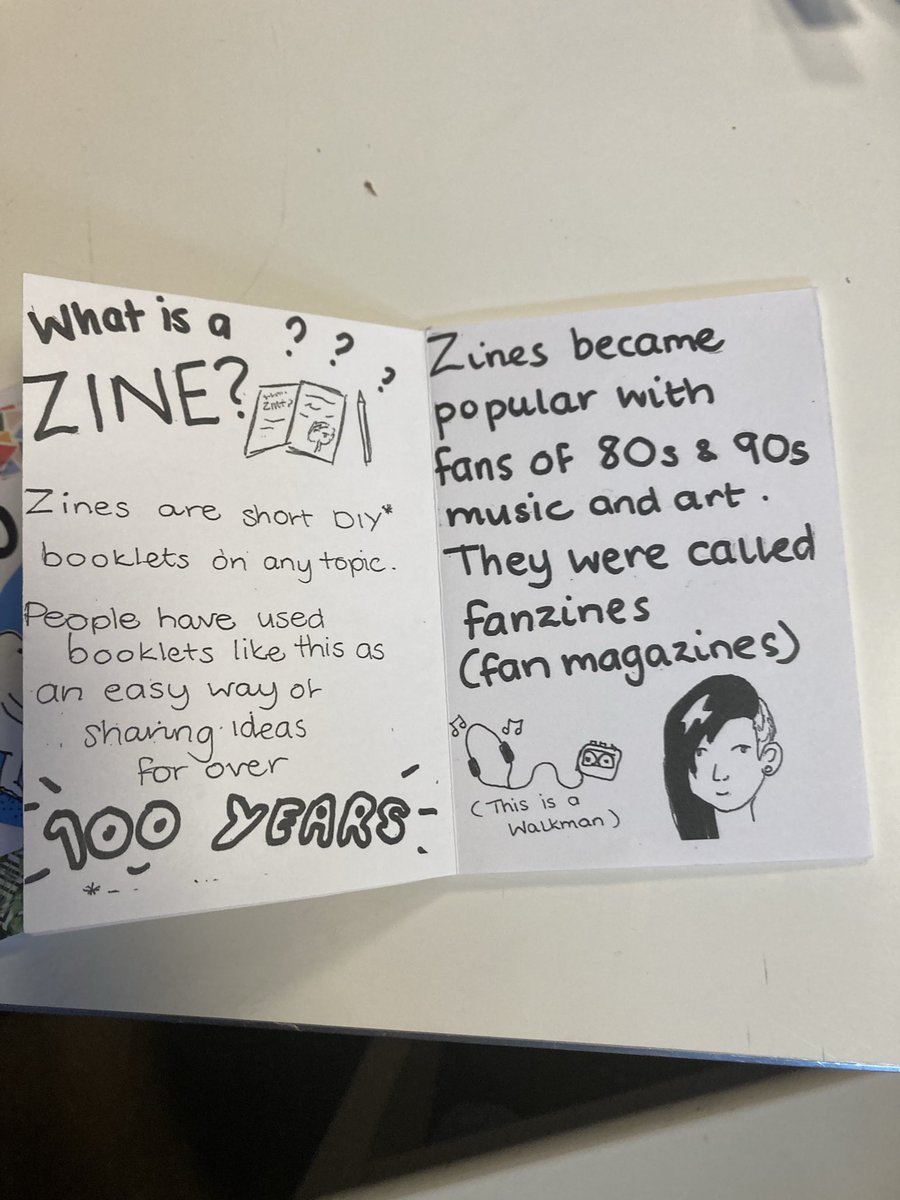 What is a
ZINE?
? ? ?
Zines are short DIY*
booklets on any topic.
People have used
booklets like this as
an easy way of
sharing ideas
for over
100 YEARS
Zines became
popular with
fans of 80s & 90s
music and art.
They were called
fanzines
(fan magazines)
(This is a
Walkman)